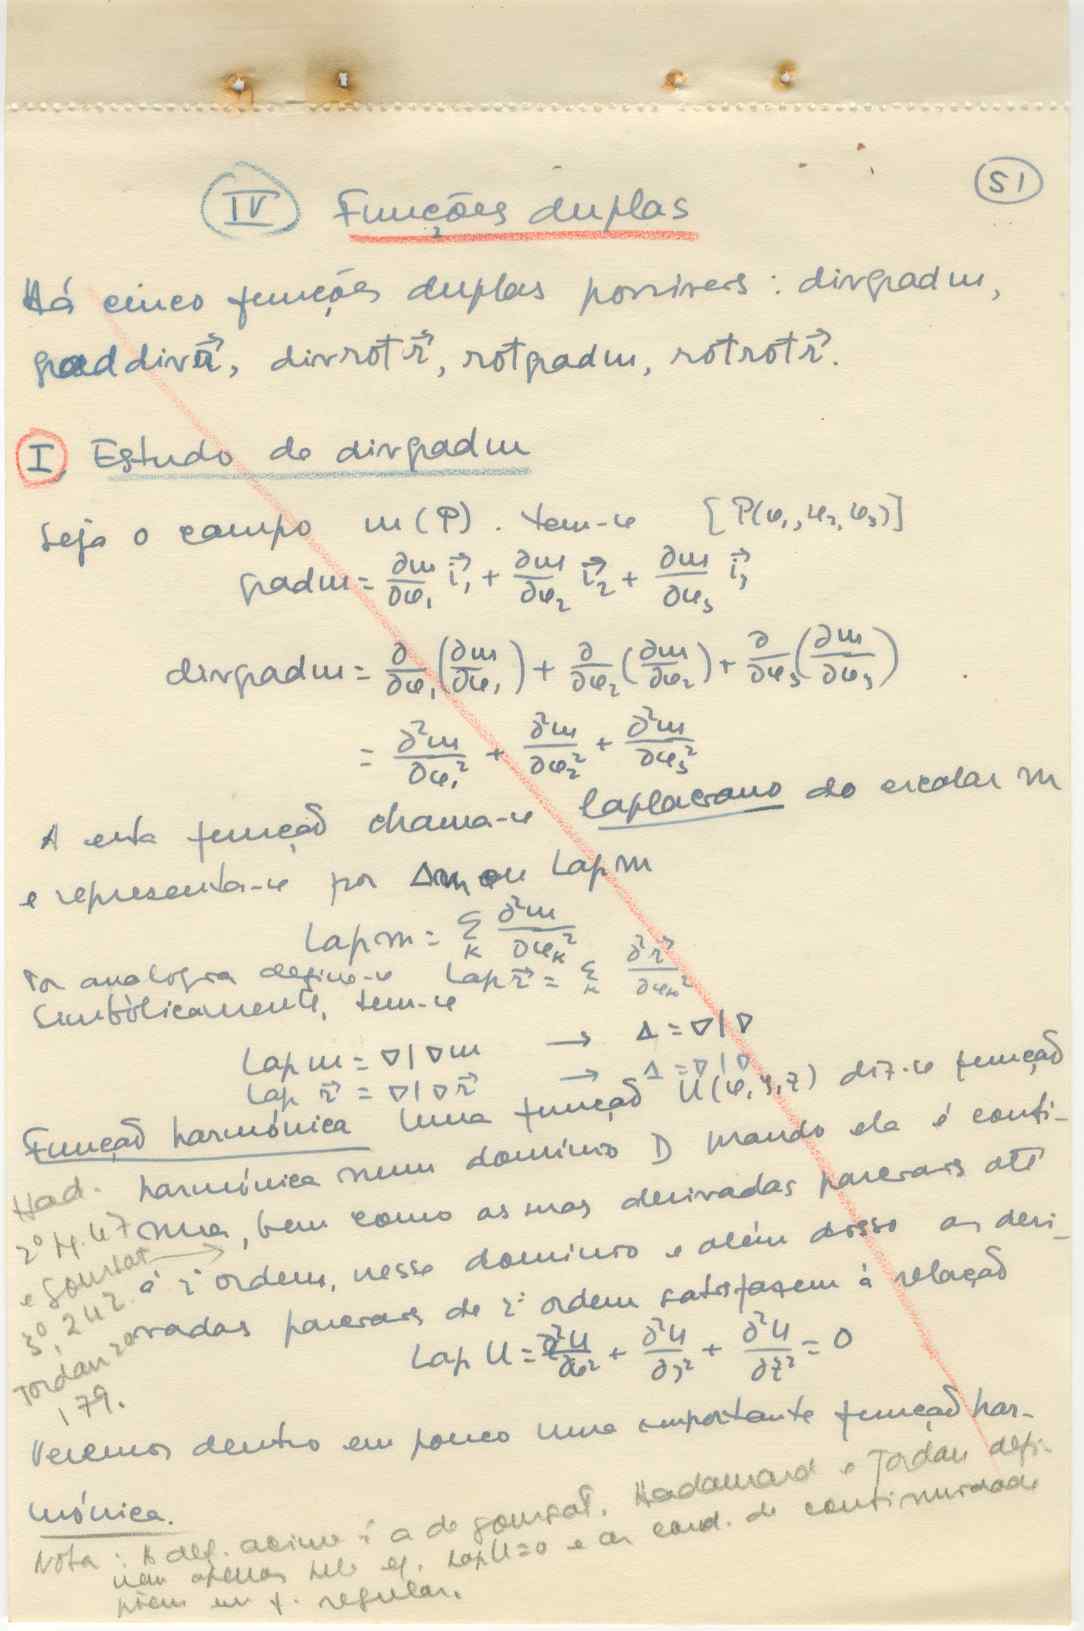 IV Funções duplas
51
Há cinco funções duplas possíveis: div grad m,
grad div r⃗, div rot r⃗, rot grad m, rot rot r⃗.
I Estudo de div grad m
Seja o campo m(P). Tem-se [P(φ₁, φ₂, φ₃)]
grad m = ∂m/∂φ₁ i⃗₁ + ∂m/∂φ₂ i⃗₂ + ∂m/∂φ₃ i⃗₃
div grad m = ∂/∂φ₁ (∂m/∂φ₁) + ∂/∂φ₂ (∂m/∂φ₂) + ∂/∂φ₃ (∂m/∂φ₃)
= ∂²m/∂φ₁² + ∂²m/∂φ₂² + ∂²m/∂φ₃²
A esta função chama-se laplaciano do escalar m
e representa-se por Δm ou Lap m
Lap m = Σ_K ∂²m/∂φ_K²
Por analogia define-se Lap r⃗ = Σ_K ∂²r⃗/∂φ_K²
Simbòlicamente, tem-se
Lap m = ∇|∇m → Δ = ∇|∇
Lap r⃗ = ∇|∇r⃗ → Δ = ∇|∇
Função harmónica Uma função U(φ, y, z) diz-se função
harmónica num domínio D quando ela é contí-
nua, bem como as suas derivadas parciais até
à 2ª ordem, nesse domínio e além disso as deri-
vadas parciais de 2ª ordem satisfazem à relação
Had.
2º pg. 47
e Goursat →
3º, 242.
Jordan 2º
179.
Lap U = ∂²U/∂φ² + ∂²U/∂y² + ∂²U/∂z² = 0
Veremos dentro em pouco uma importante função har-
mónica.
Nota: A def. acima é a de Goursat. Hadamard e Jordan defi-
nem apenas pela eq. Lap U = 0 e as cond. de continuidade
põem em f. regular.